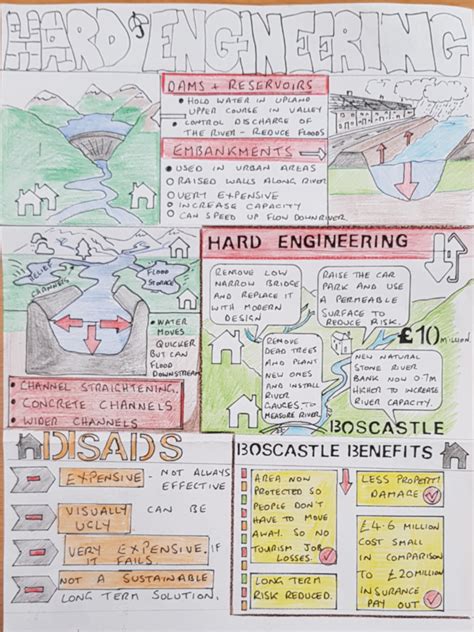 HARD ENGINEERING
DAMS + RESERVOIRS
HOLD WATER IN UPLAND
UPPER COURSE IN VALLEY
CONTROL DISCHARGE OF
THE RIVER - REDUCE FLOODS
EMBANKMENTS
USED IN URBAN AREAS
RAISED WALLS ALONG RIVER
VERY EXPENSIVE
INCREASE CAPACITY
CAN SPEED UP FLOW DOWNRIVER
RELIEF
CHANNELS
FLOOD
STORAGE
WATER
MOVES
QUICKER
BUT CAN
FLOOD
DOWNSTREAM
CHANNEL STRAIGHTENING.
CONCRETE CHANNELS.
WIDER CHANNELS
HARD ENGINEERING
REMOVE LOW
NARROW BRIDGE
AND REPLACE IT
WITH MODERN
DESIGN
RAISE THE CAR
PARK AND USE
A PERMEABLE
SURFACE TO
REDUCE RISK.
£10 MILLION
REMOVE
DEAD TREES
AND PLANT
NEW ONES
AND INSTALL
RIVER
GAUGES, TO
MEASURE RIVER
NEW NATURAL
STONE RIVER
BANK NOW 0.7M
HIGHER TO INCREASE
RIVER CAPACITY.
BOSCASTLE
DISADS
EXPENSIVE - NOT ALWAYS
EFFECTIVE
VISUALLY CAN BE
UGLY
VERY EXPENSIVE. IF
IT FAILS.
NOT A SUSTAINABLE
LONG TERM SOLUTION.
BOSCASTLE BENEFITS
AREA NOW
PROTECTED SO
PEOPLE DON'T
HAVE TO MOVE
AWAY. SO NO
TOURISM JOB
LOSSES.
LONG TERM
RISK REDUCED.
LESS PROPERTY
DAMAGE
£4.6 MILLION
COST SMALL
IN COMPARISON
TO £20 MILLION
INSURANCE
PAY OUT